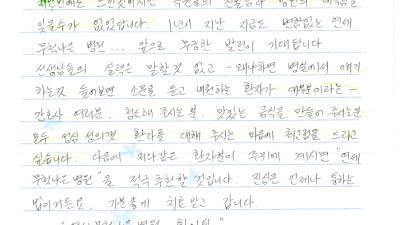 잊을수가 없었답니다. 1년이 지난 지금도 변함없는 연세
무척나은 병원... 앞으로 무궁한 발전이 기대됩니다.
선생님들의 실력은 말할것 없고 - 왜냐하면 병실에서 얘기
하는것 들어보면 소문을 듣고 내원하는 환자가 대부분이라는 -
간호사 여러분. 청소해 주시는분. 맛있는 음식을 만들어 주시는분
모두 성심 성의껏 환자를 대해 주시는 마음에 최고점을 드리고
싶습니다. 다음에 저와같은 환자분이 주위에 계시면 "연세
무척나은 병원"을 적극 추천할 것입니다. 진심은 언제나 통하는
법이거든요. 기분좋게 치료받고 갑니다.